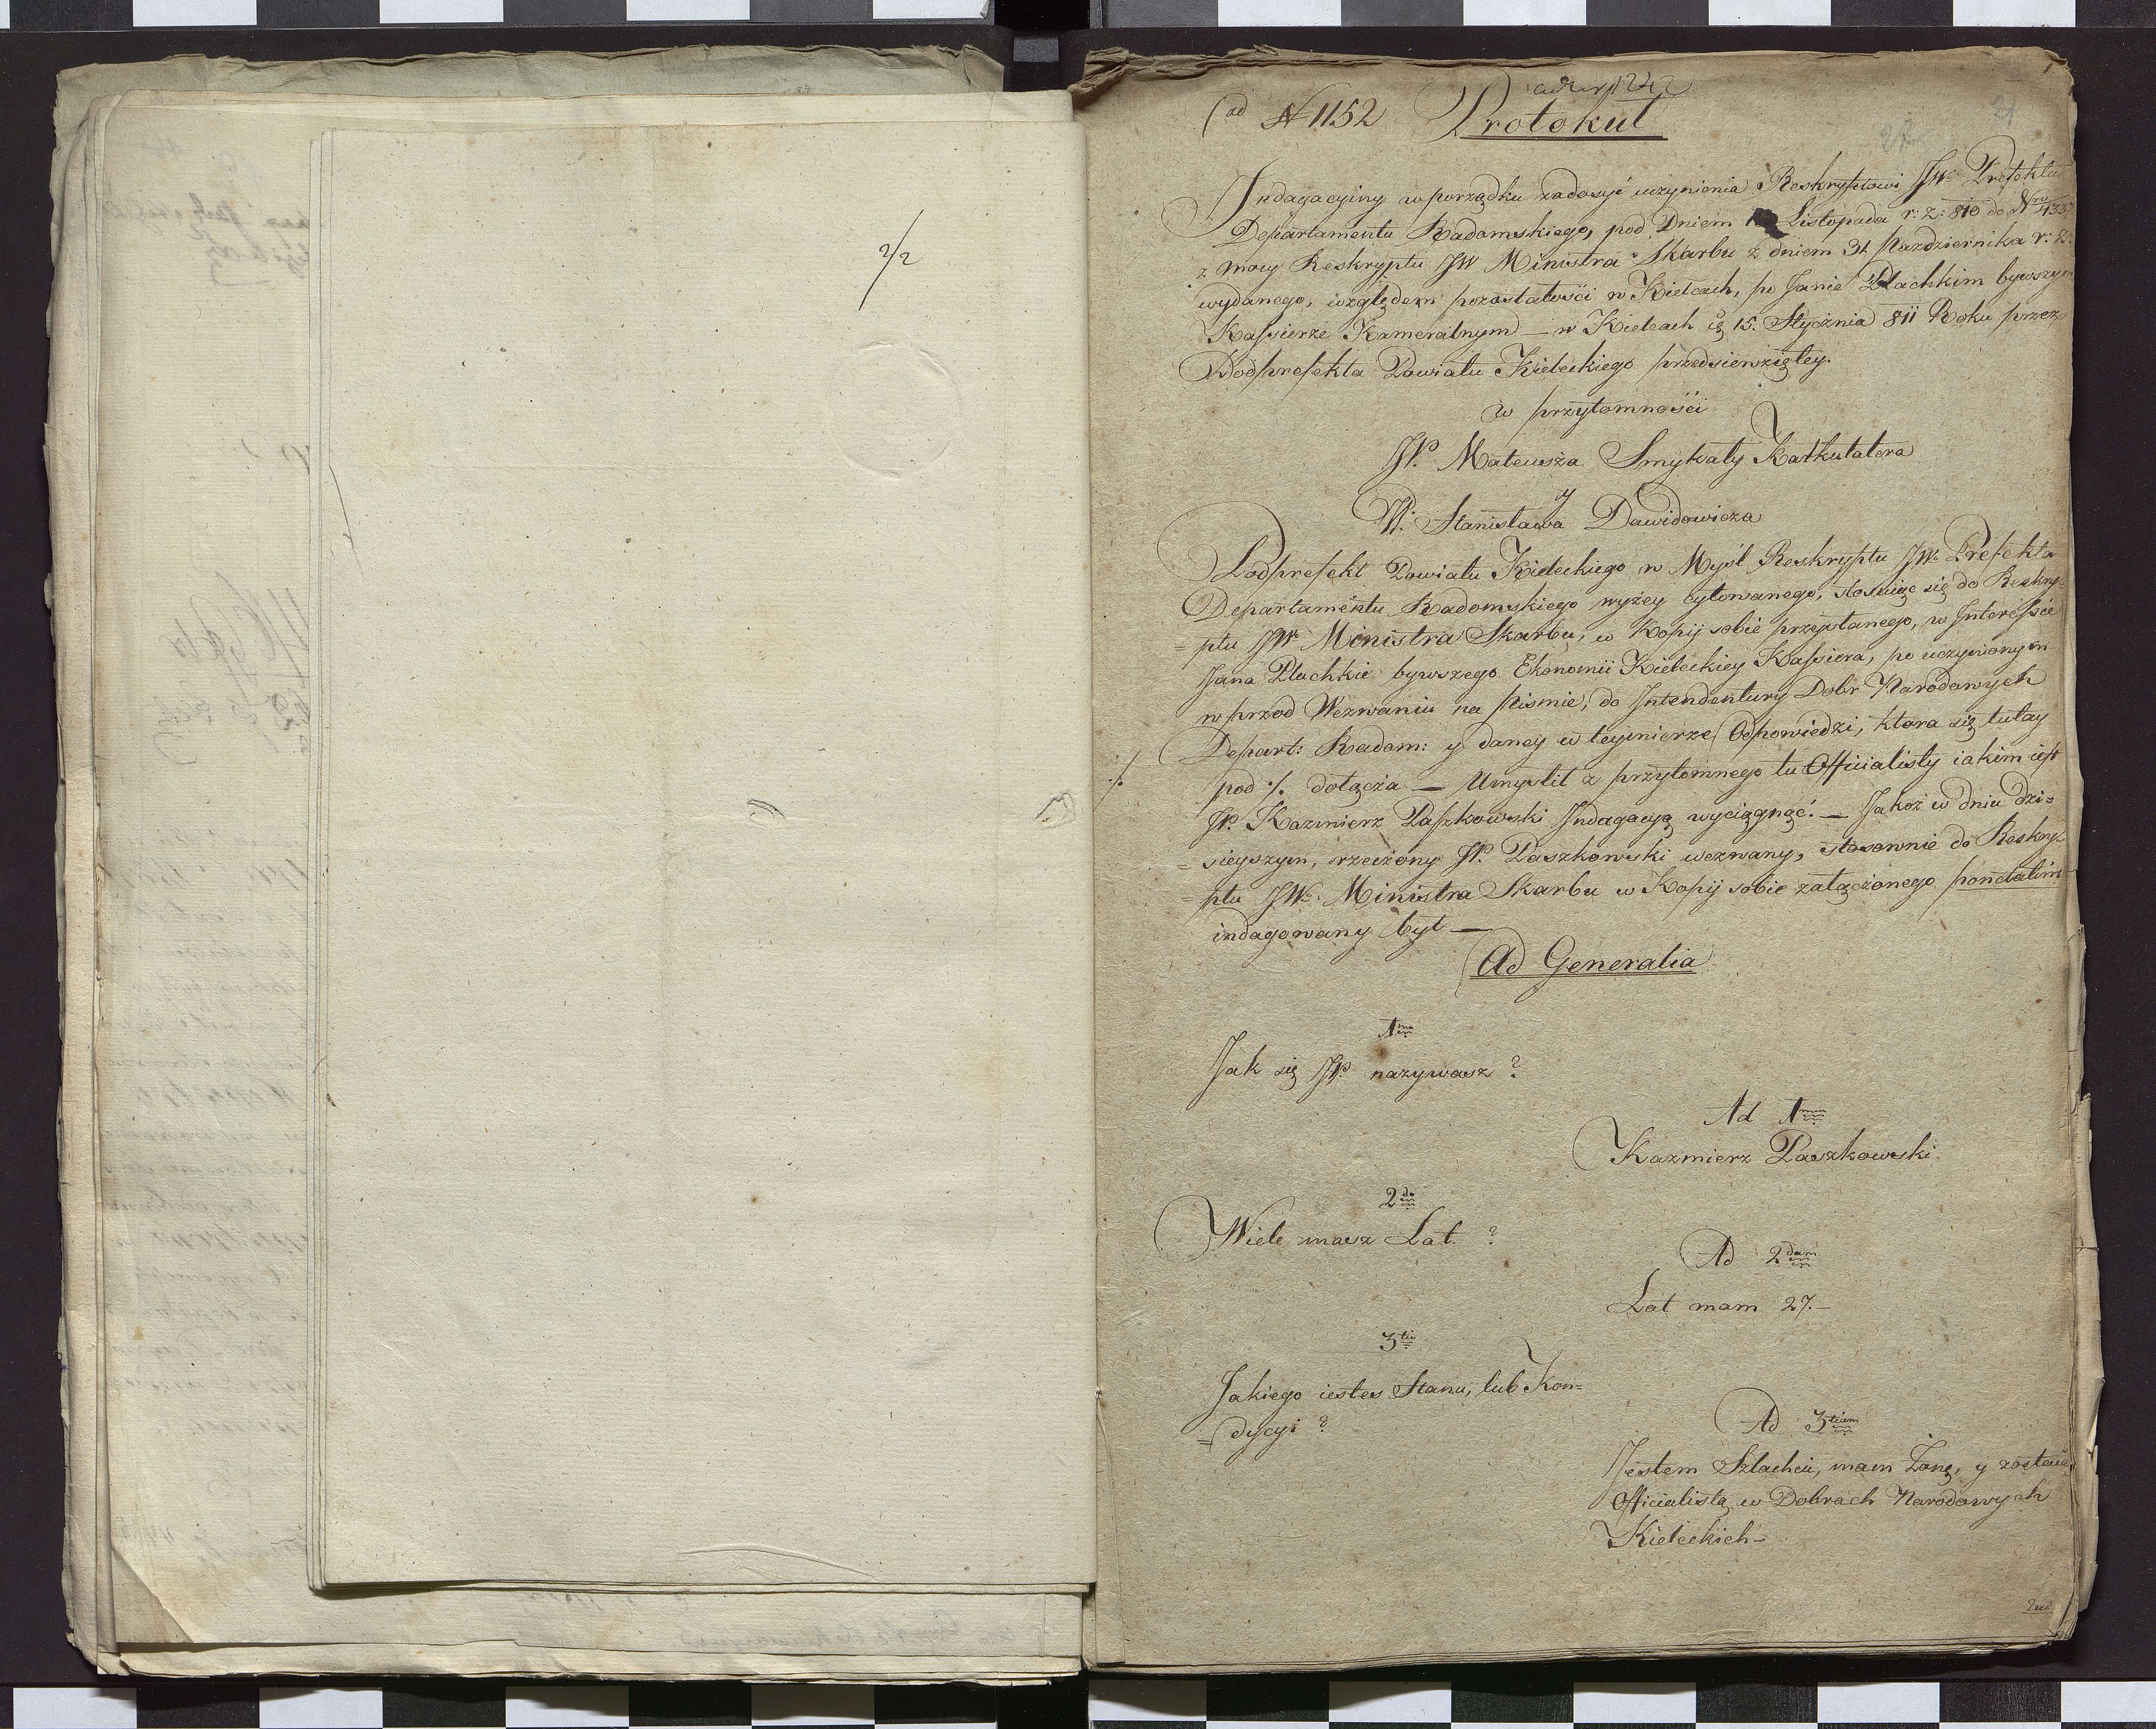 2/2
ad N 1152 Protokuł
Indagacyiny w porządku zadosyć uczynienia Reskryptowi JW. Prefekta
Departamentu Radomskiego, pod Dniem Listopada r: z: 810 do Nru
z mocy Reskryptu JW Ministra Skarbu z dniem 31 Pazdziernika r: z:
wydanego, względem pozostałości w Kielcach, po Janie Plachkim bywszym
Kassierze Kameralnym — w Kielcach dę 15. Stycznia 811 Roku przez
Podprefekta Powiatu Kieleckiego przedsiewziętey.
w przytomności
JP. Mateusza Smykały Kalkulatora
y
W. Stanisława Dawidowicza
Podprefekt Powiatu Kieleckiego w Myśl Reskryptu JW. Prefekta
Departamentu Radomskiego wyżey cytowanego, stosuiąc się do Reskry=
=ptu JW Ministra Skarbu, w Kopij sobie przysłanego, w Interessie
Jana Plachkie bywszego Ekonomii Kieleckiey Kassiera, po uczynionym
w przod Wezwaniu na Pismie, do Intendentury Dobr Narodowych
Depart: Radom: y daney w teymierze Odpowiedzi, ktora się tutay
·/. pod ·/. dołącza — Umyslił z przytomnego tu Officialisty iakim iest
JP. Kazmierz Paszkowski Indagacyą wyciągnąć. — Jakoż w dniu dzi=
=sieyszym, rzeczony JP. Paszkowski wezwany, stosownie do Reskry=
=ptu JW. Ministra Skarbu w Kopij sobie załączonego ponctatim
indagowany był —
Ad Generalia
1mo
Jak się JP. nazywasz?
Ad 1mum
Kazmierz Paszkowski.
2do
Wiele masz Lat?
Ad 2dum
Lat mam 27.—
3tio
Jakiego iestes Stanu, lub Kon=
=dycyi?
Ad 3tium
Jestem Szlachcic, mam Żonę, y zostaię
Officialistą w Dobrach Narodowych
Kieleckich—